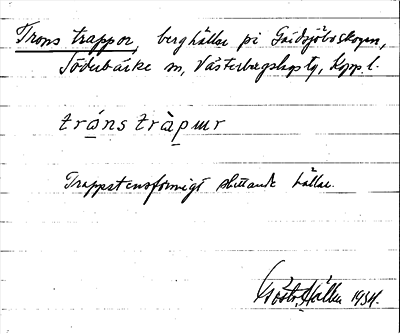 Trons trappor, berghällar på Gridsjöboskogen,
Söderbärke sn, Västerbergslags tg, Kopp. l.
tránstràpur
Trappstensformigt sluttande hällar.
Gösta Hallén 1934.